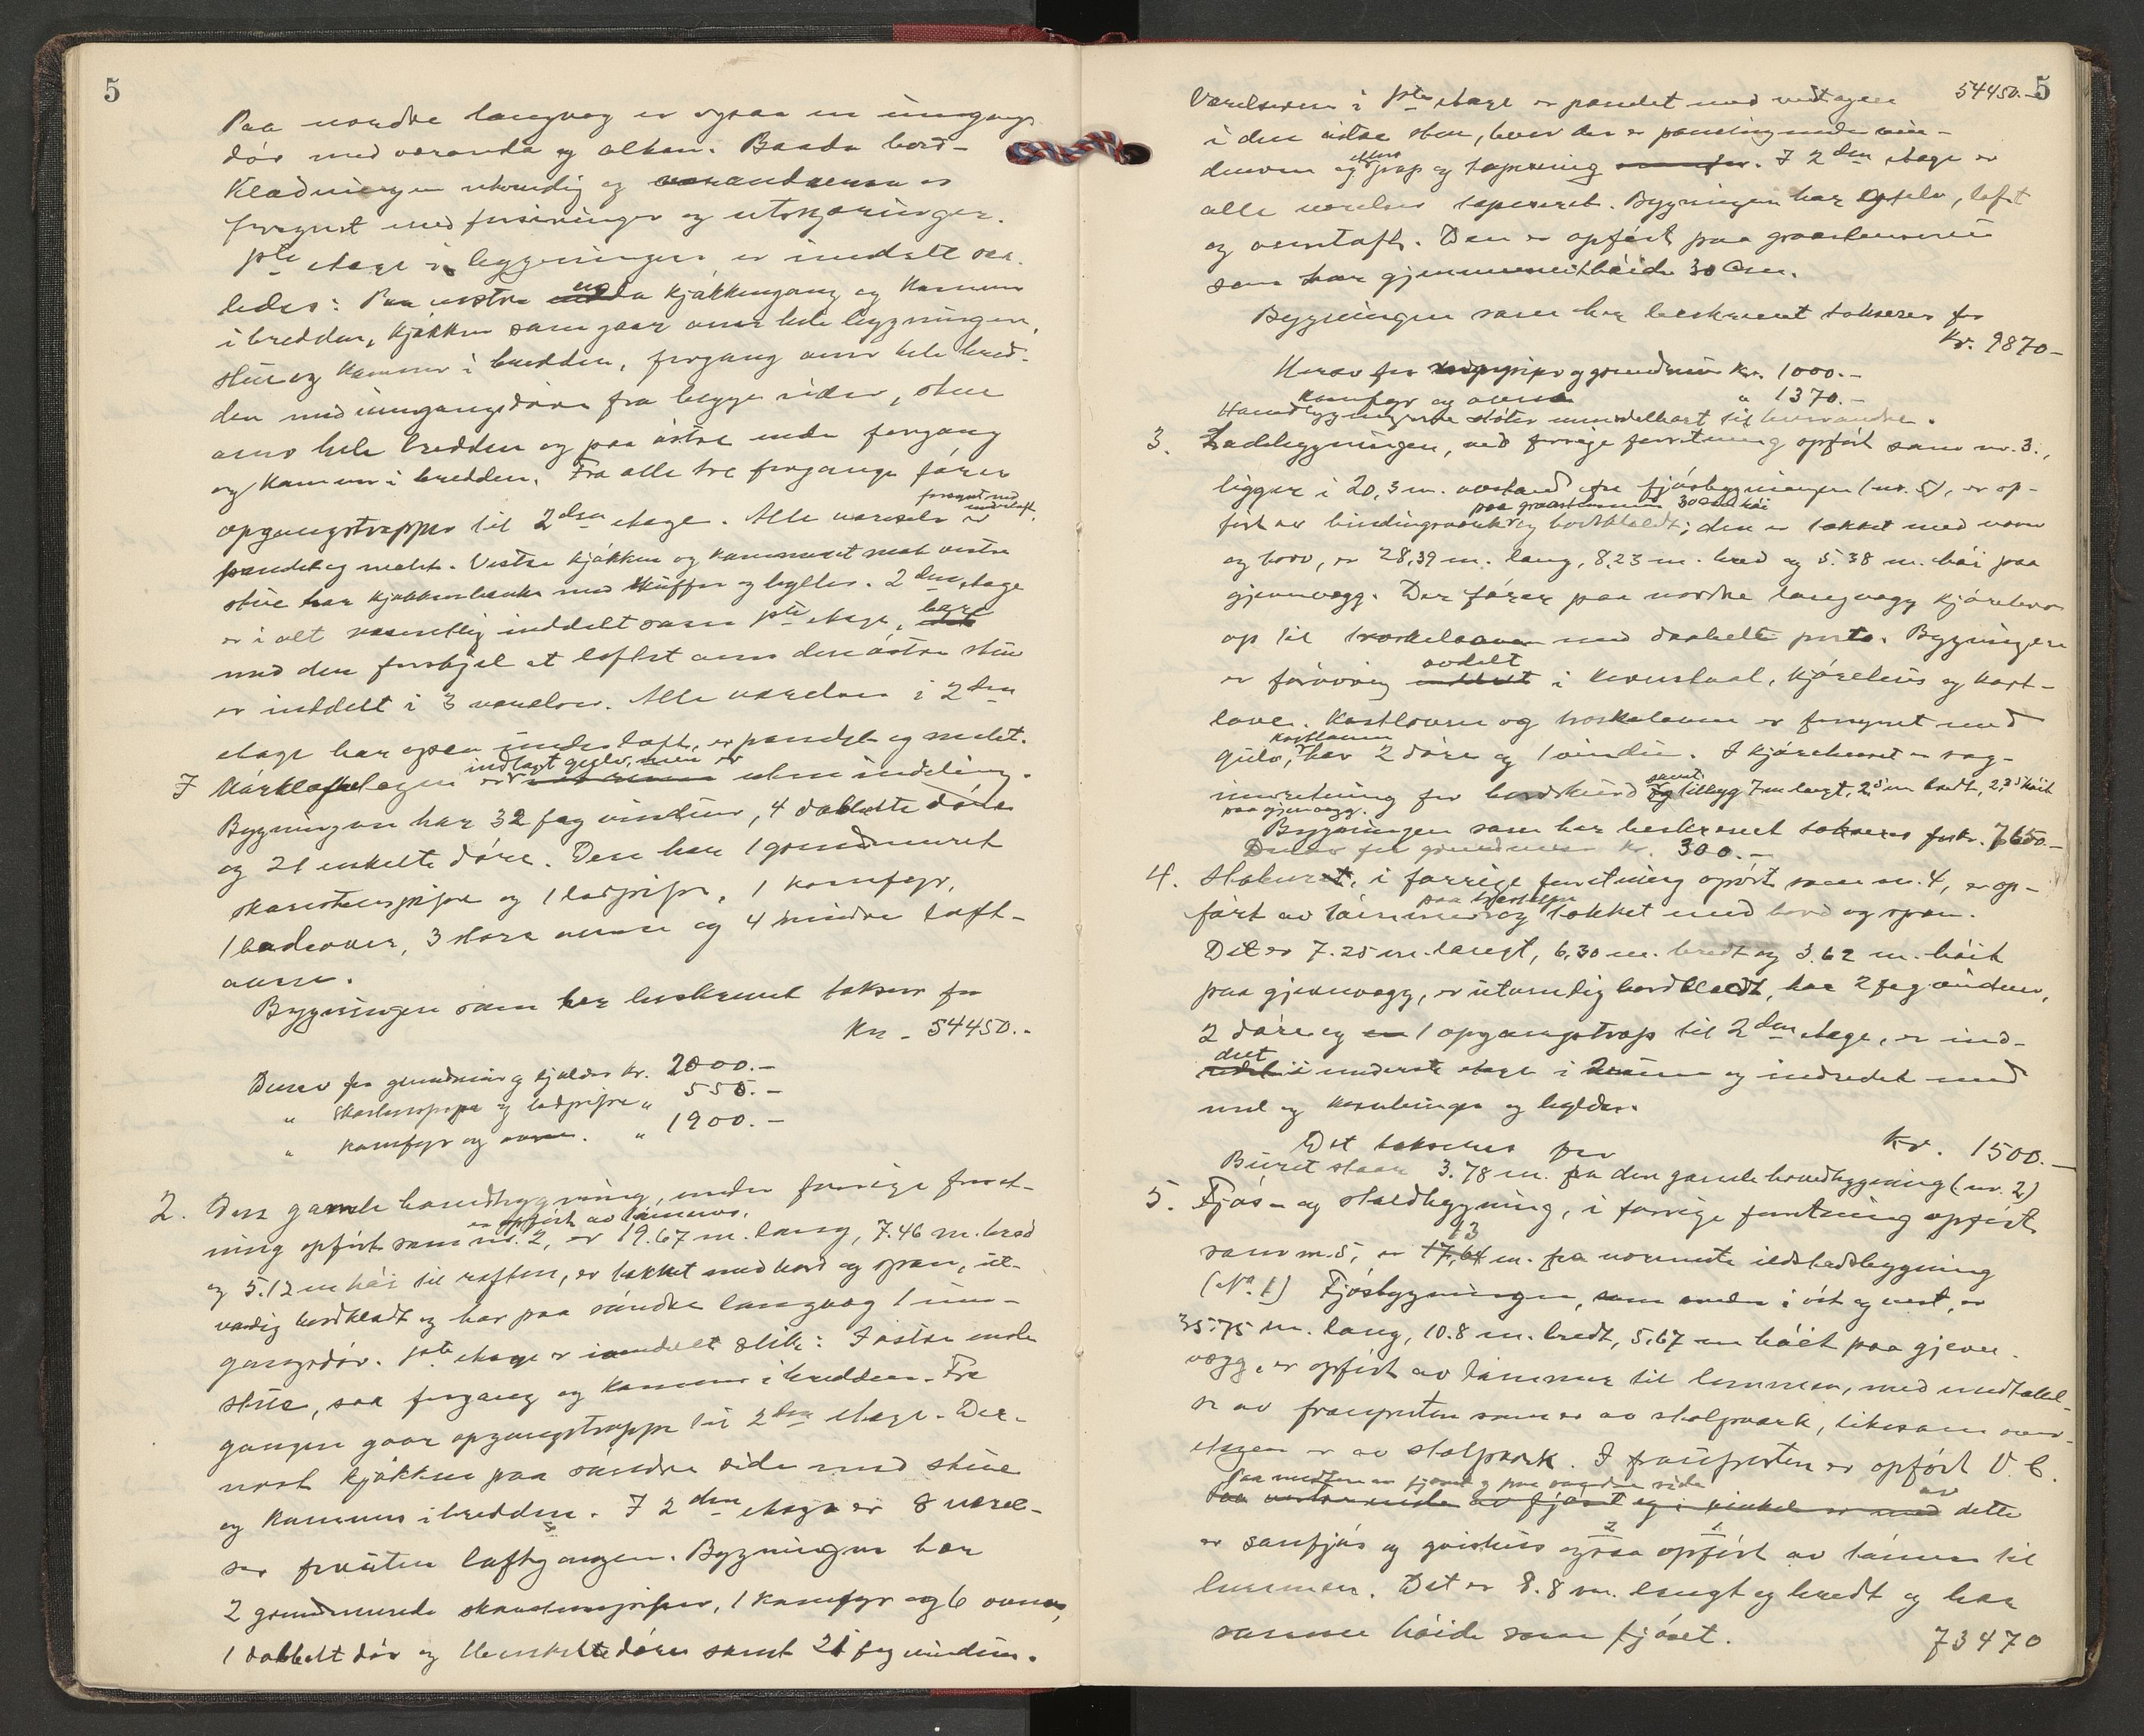 5
Paa nordre langvæg er ogsaa en inngangs
dör med veranda og altan. Baade bord-
klædningen utvendig og verandaerne er
forsynt med forsiringer og utskjæringer.
1ste etage i bygningen er inndelt saa-
ledes: Paa vestre ende kjøkkengang og kammer
i bredden, kjøkken som gaar over hele bygningen,
stue og kammer i bredden, forgang over hele bred-
den med inngangsdøre fra begge sider, stue
over hele bredden og paa østre ende forgang
og kammer i bredden. Fra alle tre forgange fører
forsynt med underloft,
opgangstrapper til 2den etage. Alle værelser er
pandet og malt. Vestre kjøkken og kammeret mot vestre
stue har kjøkkenbænke med skuffer og hylder. 2den etage
er i alt væsentlig inddelt som 1ste etage, bare
med den forskjel at loftet over den østre stue
er inddelt i 3 værelser. Alle værelser i 2den
etage har ogsaa underloft, er pandet og malt.
indlagt gulv, men er
I mørkloftetagen er uten inddeling.
Bygningen har 32 fag vinduer, 4 dobbelte døre
og 21 enkelte døre. Den har 1 grundmuret
skorstenspipe og 1 ladpipe, 1 komfyr,
1 badeovn, 3 store ovner og 4 mindre loft-
ovne.
Bygningen som her beskrevet takseres for
Kr. 54450.-
Derav for grundmur og kjelder kr. 2000.-
" skorstenspipe og ladpipe " 550.-
" komfyr og ovner. " 1900.-
2. Den gamle hovedbygning, under forrige forret-
er opført av tømmer,
ning opført som nr. 2, er 19.67 m. lang, 7.46 m. bred
og 5.12 m høi til raften, er tækket med bord og spon, ut-
vendig bordklædt og har paa søndre langvæg 1 inn-
gangsdør. 1ste etage er inndelt slik: I østre ende
stue, saa forgang og kammer i bredden. Fra
gangen gaar opgangstrappe til 2den etage. Der-
næst kjøkken paa søndre side med stue
og kammer i bredden. I 2den etage er 8 værel-
ser foruten loftsgangen. Bygningen har
2 grundmurede skorstenspiper, 1 komfyr og 6 ovner,
1 dobbelt dør og 11 enkelte døre samt 21 fag vinduer.
54450.-
5
Værelserne i 1ste etage er pandet med undtagen
i den østre stue, hvor der er panding under vin-
duerne og ellers pap og tapesering. I 2den etage er
alle værelser tapeseret. Bygningen har gulv, loft
og overloft. Den er opført paa graastensmur
som har gjennemsnitshøide 30 cm.
Bygningen som her beskrevet takseres for
Kr. 9870-
Herav for og grundmur Kr. 1000.-
Komfyr og ovne " 1370.-
Hovedbygningerne støter umiddelbart til hverandre.
3. Ladebygningen, ved forrige forretning opført som nr. 3.,
ligger i 20,3 m. avstand fra fjøsbygningen (nr. 5), er op-
paa graastensmur 30 cm høi
ført av bindingsverk og bordklædt; den er tækket med
og bord, er 28,39 m. lang, 8,23 m. bred og 5.38 m. høi paa
gjennvegg. Der fører paa nordre langvegg kjørebro
op til treskelaaven med dobbelte porte. Bygningen
avdelt
er forøvrig i kornstaal, kjørehus og kast-
lover. Kastloven og treskeloven er forsynet med
kastloven
gulv, har 2 døre og 1 vindu. I kjørehuset er sag-
samt
innretning for bordskurd tilbyg 7 m langt, 2,5 m bredt, 2,25 høit
paa gjenvegg.
Bygningen som her beskrevet takseres for kr. 7650.-
Derav for grundmur kr. 300.-
4. Stabburet, i forrige forretning opført som nr. 4, er op-
paa stolper
ført av tømmer og tækket med bord og spon.
Det er 7.25 m. langt, 6,30 m. bredt og 3.62 m. høit
paa gjennvegg, er utvendig bordklædt, har 2 fag vinduer,
2 døre og 1 opgangstrap til 2den etage, er ind-
delt
i underste etage i 2 rum og indredet med
mel og kornbinger og hylder.
Det takseres for Kr. 1500.-
Buret staar 3.78 m. fra den gamle hovedbygning (nr. 2)
5. Fjøs- og staldbygning, i forrige forretning opført
13
som nr. 5, er 17,64 m. fra nærmeste ildstedsbygning
(No. 1) Fjøsbygningen, som vender i øst og vest, er
35.75 m. lang, 10.8 m. bredt, 5,67 m høit paa gjenn-
vægg, er opført av tømmer til lemmen, med undtakel-
se av frauporten som er av stolpverk, likesom over-
etagen er av stolpverk. I frauporten er opført V.C.
Paa midten av fjøset og paa søndre side
Paa vestre ende av fjøset og i vinkel er med av dette
er saufjøs og grishus ogsaa opført av tømmer til
lemmen. Det er 8.8 m. langt og bredt og har
samme høide som fjøset.
73470